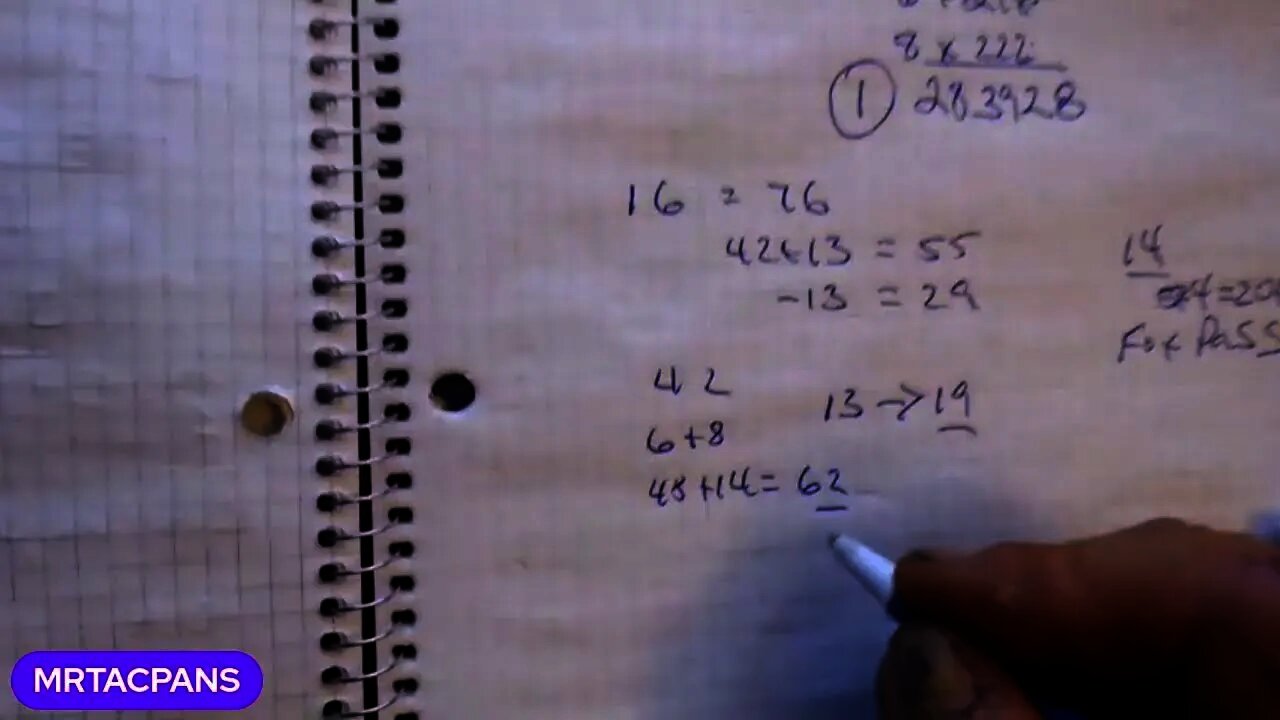 8 x 222
1 283928
16 = 76
42+13 = 55
14
-13 = 29
For Pass
42
13 → 19
6+8
48+14= 62
MRTACPANS